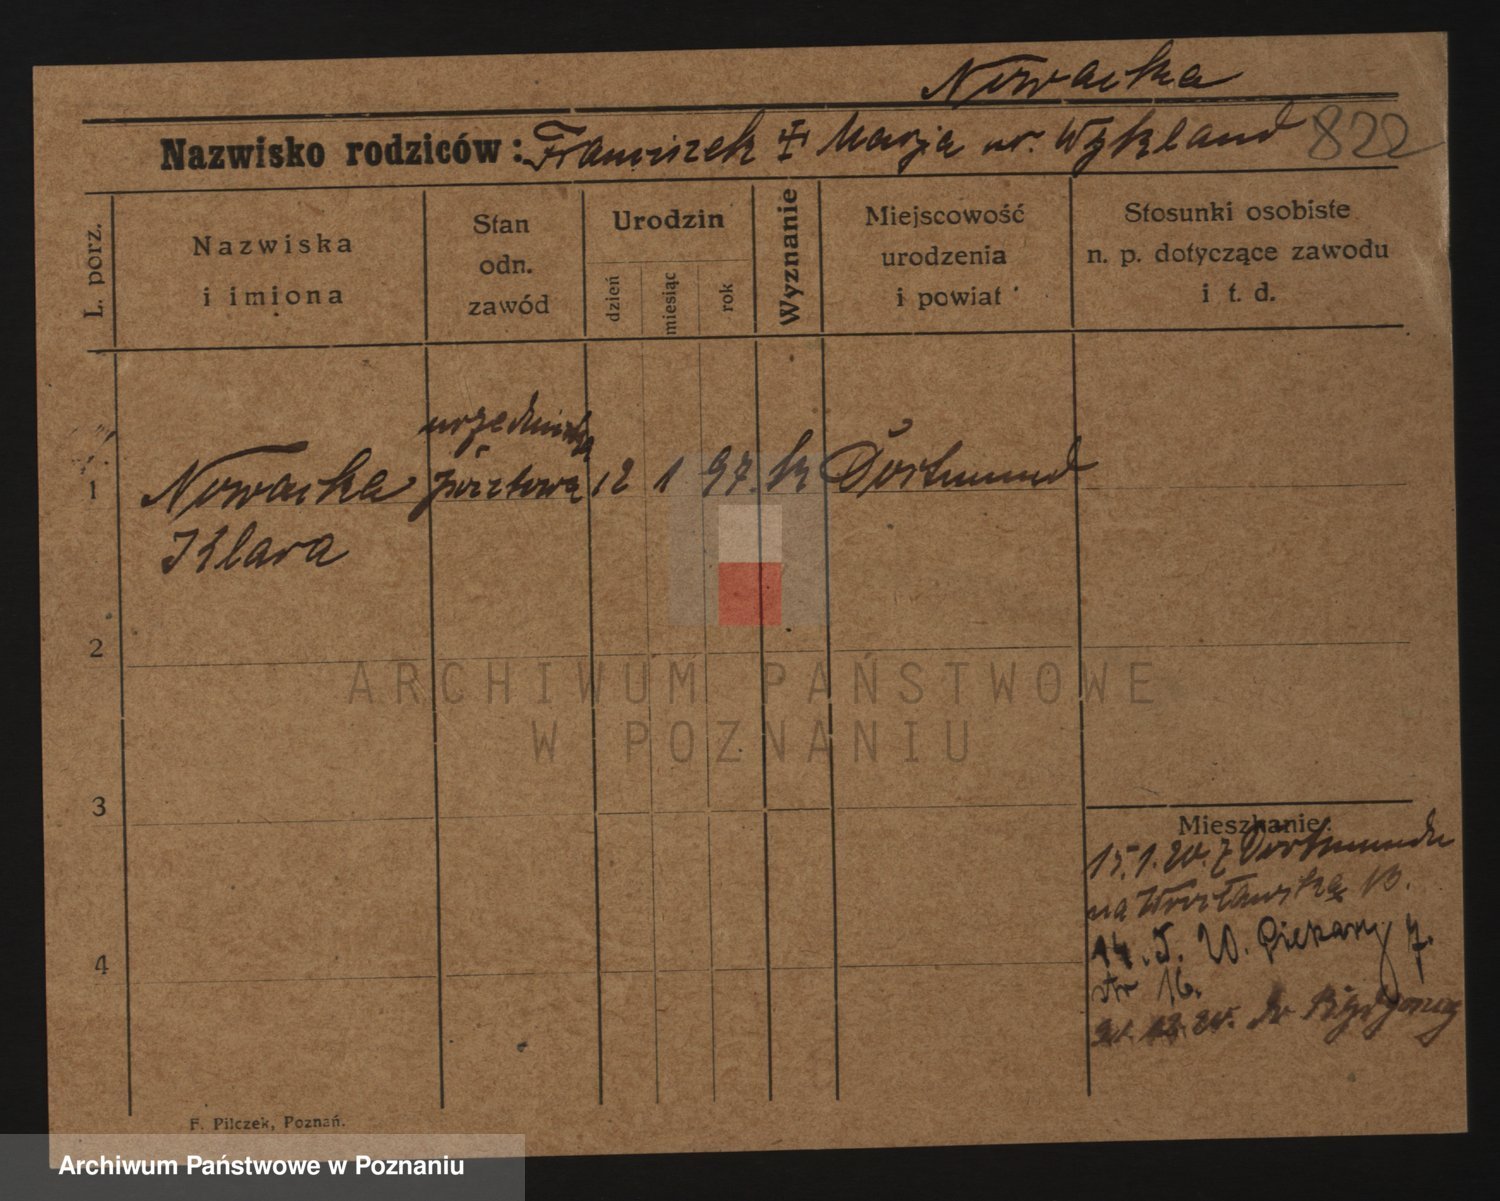 Nowacka
Nazwisko rodziców: Franciszek + Marja ur. Wykland 822
L. porz.
Nazwiska i imiona
Stan odn. zawód
Urodzin
dzień
miesiąc
rok
Wyznanie
Miejscowość urodzenia i powiat
Stosunki osobiste n. p. dotyczące zawodu i t. d.
urzędniczka
1 Nowacka pocztowa 12 1 97. k Dortmund
Klara
2
ARCHIWUM PAŃSTWOWE
W POZNANIU
3
Mieszkanie:
15.1.20. z Dortmundu
na Wrocławską 13.
4
14. 5. 20. Piekary 7.
str 16.
12. 20. do Bydgoszcz
F. Pilczek, Poznań.
Archiwum Państwowe w Poznaniu